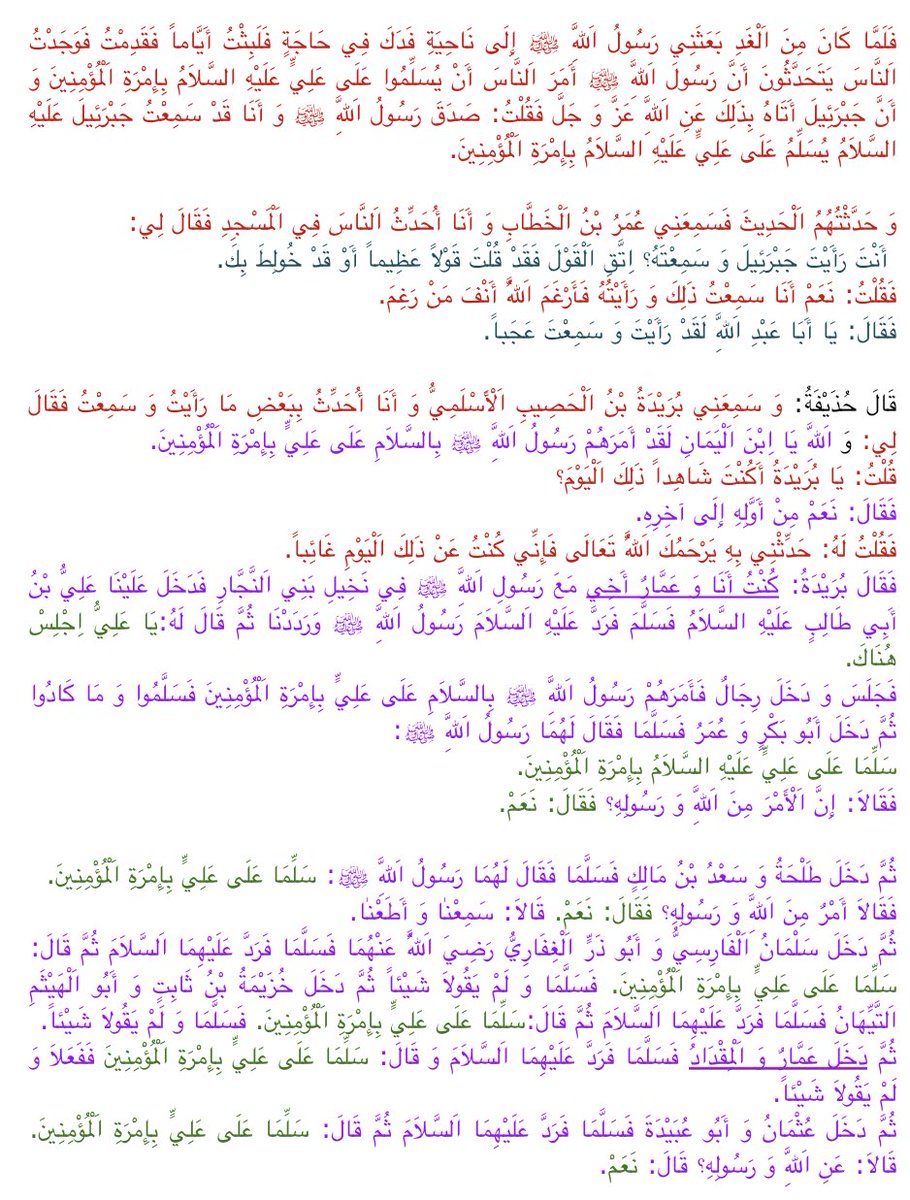 فَلَمَّا كَانَ مِنَ اَلْغَدِ بَعَثَنِي رَسُولُ اَللَّهِ ﷺ إِلَى نَاحِيَةِ فَدَكَ فِي حَاجَةٍ فَلَبِثْتُ أَيَّاماً فَقَدِمْتُ فَوَجَدْتُ
اَلنَّاسَ يَتَحَدَّثُونَ أَنَّ رَسُولَ اَللَّهِ ﷺ أَمَرَ اَلنَّاسَ أَنْ يُسَلِّمُوا عَلَى عَلِيٍّ عَلَيْهِ السَّلاَمُ بِإِمْرَةِ اَلْمُؤْمِنِينَ وَ
أَنَّ جَبْرَئِيلَ أَتَاهُ بِذَلِكَ عَنِ اَللَّهِ عَزَّ وَ جَلَّ فَقُلْتُ: صَدَقَ رَسُولُ اَللَّهِ ﷺ وَ أَنَا قَدْ سَمِعْتُ جَبْرَئِيلَ عَلَيْهِ
السَّلاَمُ يُسَلِّمُ عَلَى عَلِيٍّ عَلَيْهِ السَّلاَمُ بِإِمْرَةِ اَلْمُؤْمِنِينَ.
وَ حَدَّثْتُهُمُ اَلْحَدِيثَ فَسَمِعَنِي عُمَرُ بْنُ اَلْخَطَّابِ وَ أَنَا أُحَدِّثُ اَلنَّاسَ فِي اَلْمَسْجِدِ فَقَالَ لِي:
أَنْتَ رَأَيْتَ جَبْرَئِيلَ وَ سَمِعْتَهُ؟ اِتَّقِ اَلْقَوْلَ فَقَدْ قُلْتَ قَوْلاً عَظِيماً أَوْ قَدْ خُولِطَ بِكَ.
فَقُلْتُ: نَعَمْ أَنَا سَمِعْتُ ذَلِكَ وَ رَأَيْتُهُ فَأَرْغَمَ اَللَّهُ أَنْفَ مَنْ رَغِمَ.
فَقَالَ: يَا أَبَا عَبْدِ اَللَّهِ لَقَدْ رَأَيْتَ وَ سَمِعْتَ عَجَباً.
قَالَ حُذَيْفَةُ: وَ سَمِعَنِي بُرَيْدَةُ بْنُ اَلْحَصِيبِ اَلْأَسْلَمِيُّ وَ أَنَا أُحَدِّثُ بِبَعْضِ مَا رَأَيْتُ وَ سَمِعْتُ فَقَالَ
لِي: وَ اَللَّهِ يَا اِبْنَ اَلْيَمَانِ لَقَدْ أَمَرَهُمْ رَسُولُ اَللَّهِ ﷺ بِالسَّلاَمِ عَلَى عَلِيٍّ بِإِمْرَةِ اَلْمُؤْمِنِينَ.
قُلْتُ: يَا بُرَيْدَةُ أَكُنْتَ شَاهِداً ذَلِكَ اَلْيَوْمَ؟
فَقَالَ: نَعَمْ مِنْ أَوَّلِهِ إِلَى آخِرِهِ.
فَقُلْتُ لَهُ: حَدِّثْنِي بِهِ يَرْحَمُكَ اَللَّهُ تَعَالَى فَإِنِّي كُنْتُ عَنْ ذَلِكَ اَلْيَوْمِ غَائِباً.
فَقَالَ بُرَيْدَةُ: كُنْتُ أَنَا وَ عَمَّارٌ أَخِي مَعَ رَسُولِ اَللَّهِ ﷺ فِي نَخِيلِ بَنِي اَلنَّجَّارِ فَدَخَلَ عَلَيْنَا عَلِيُّ بْنُ
أَبِي طَالِبٍ عَلَيْهِ السَّلاَمُ فَسَلَّمَ فَرَدَّ عَلَيْهِ اَلسَّلاَمَ رَسُولُ اَللَّهِ ﷺ وَرَدَدْنَا ثُمَّ قَالَ لَهُ:يَا عَلِيُّ اِجْلِسْ
هُنَاكَ.
فَجَلَسَ وَ دَخَلَ رِجَالٌ فَأَمَرَهُمْ رَسُولُ اَللَّهِ ﷺ بِالسَّلاَمِ عَلَى عَلِيٍّ بِإِمْرَةِ اَلْمُؤْمِنِينَ فَسَلَّمُوا وَ مَا كَادُوا
ثُمَّ دَخَلَ أَبُو بَكْرٍ وَ عُمَرُ فَسَلَّمَا فَقَالَ لَهُمَا رَسُولُ اَللَّهِ ﷺ:
سَلِّمَا عَلَى عَلِيٍّ عَلَيْهِ السَّلاَمُ بِإِمْرَةِ اَلْمُؤْمِنِينَ.
فَقَالاَ: إِنَّ اَلْأَمْرَ مِنَ اَللَّهِ وَ رَسُولِهِ؟ فَقَالَ: نَعَمْ.
ثُمَّ دَخَلَ طَلْحَةُ وَ سَعْدُ بْنُ مَالِكٍ فَسَلَّمَا فَقَالَ لَهُمَا رَسُولُ اَللَّهِ ﷺ: سَلِّمَا عَلَى عَلِيٍّ بِإِمْرَةِ اَلْمُؤْمِنِينَ.
فَقَالاَ أَمْرٌ مِنَ اَللَّهِ وَ رَسُولِهِ؟ فَقَالَ: نَعَمْ. قَالاَ: سَمِعْنَا وَ أَطَعْنَا.
ثُمَّ دَخَلَ سَلْمَانُ اَلْفَارِسِيُّ وَ أَبُو ذَرٍّ اَلْغِفَارِيُّ رَضِيَ اَللَّهُ عَنْهُمَا فَسَلَّمَا فَرَدَّ عَلَيْهِمَا اَلسَّلاَمَ ثُمَّ قَالَ:
سَلِّمَا عَلَى عَلِيٍّ بِإِمْرَةِ اَلْمُؤْمِنِينَ. فَسَلَّمَا وَ لَمْ يَقُولاَ شَيْئاً ثُمَّ دَخَلَ خُزَيْمَةُ بْنُ ثَابِتٍ وَ أَبُو اَلْهَيْثَمِ
اَلتَّيِّهَانُ فَسَلَّمَا فَرَدَّ عَلَيْهِمَا اَلسَّلاَمَ ثُمَّ قَالَ:سَلِّمَا عَلَى عَلِيٍّ بِإِمْرَةِ اَلْمُؤْمِنِينَ. فَسَلَّمَا وَ لَمْ يَقُولاَ شَيْئاً.
ثُمَّ دَخَلَ عَمَّارٌ وَ اَلْمِقْدَادُ فَسَلَّمَا فَرَدَّ عَلَيْهِمَا اَلسَّلاَمَ وَ قَالَ: سَلِّمَا عَلَى عَلِيٍّ بِإِمْرَةِ اَلْمُؤْمِنِينَ فَفَعَلاَ وَ
لَمْ يَقُولاَ شَيْئاً.
ثُمَّ دَخَلَ عُثْمَانُ وَ أَبُو عُبَيْدَةَ فَسَلَّمَا فَرَدَّ عَلَيْهِمَا اَلسَّلاَمَ ثُمَّ قَالَ: سَلِّمَا عَلَى عَلِيٍّ بِإِمْرَةِ اَلْمُؤْمِنِينَ.
قَالاَ: عَنِ اَللَّهِ وَ رَسُولِهِ؟ قَالَ: نَعَمْ.